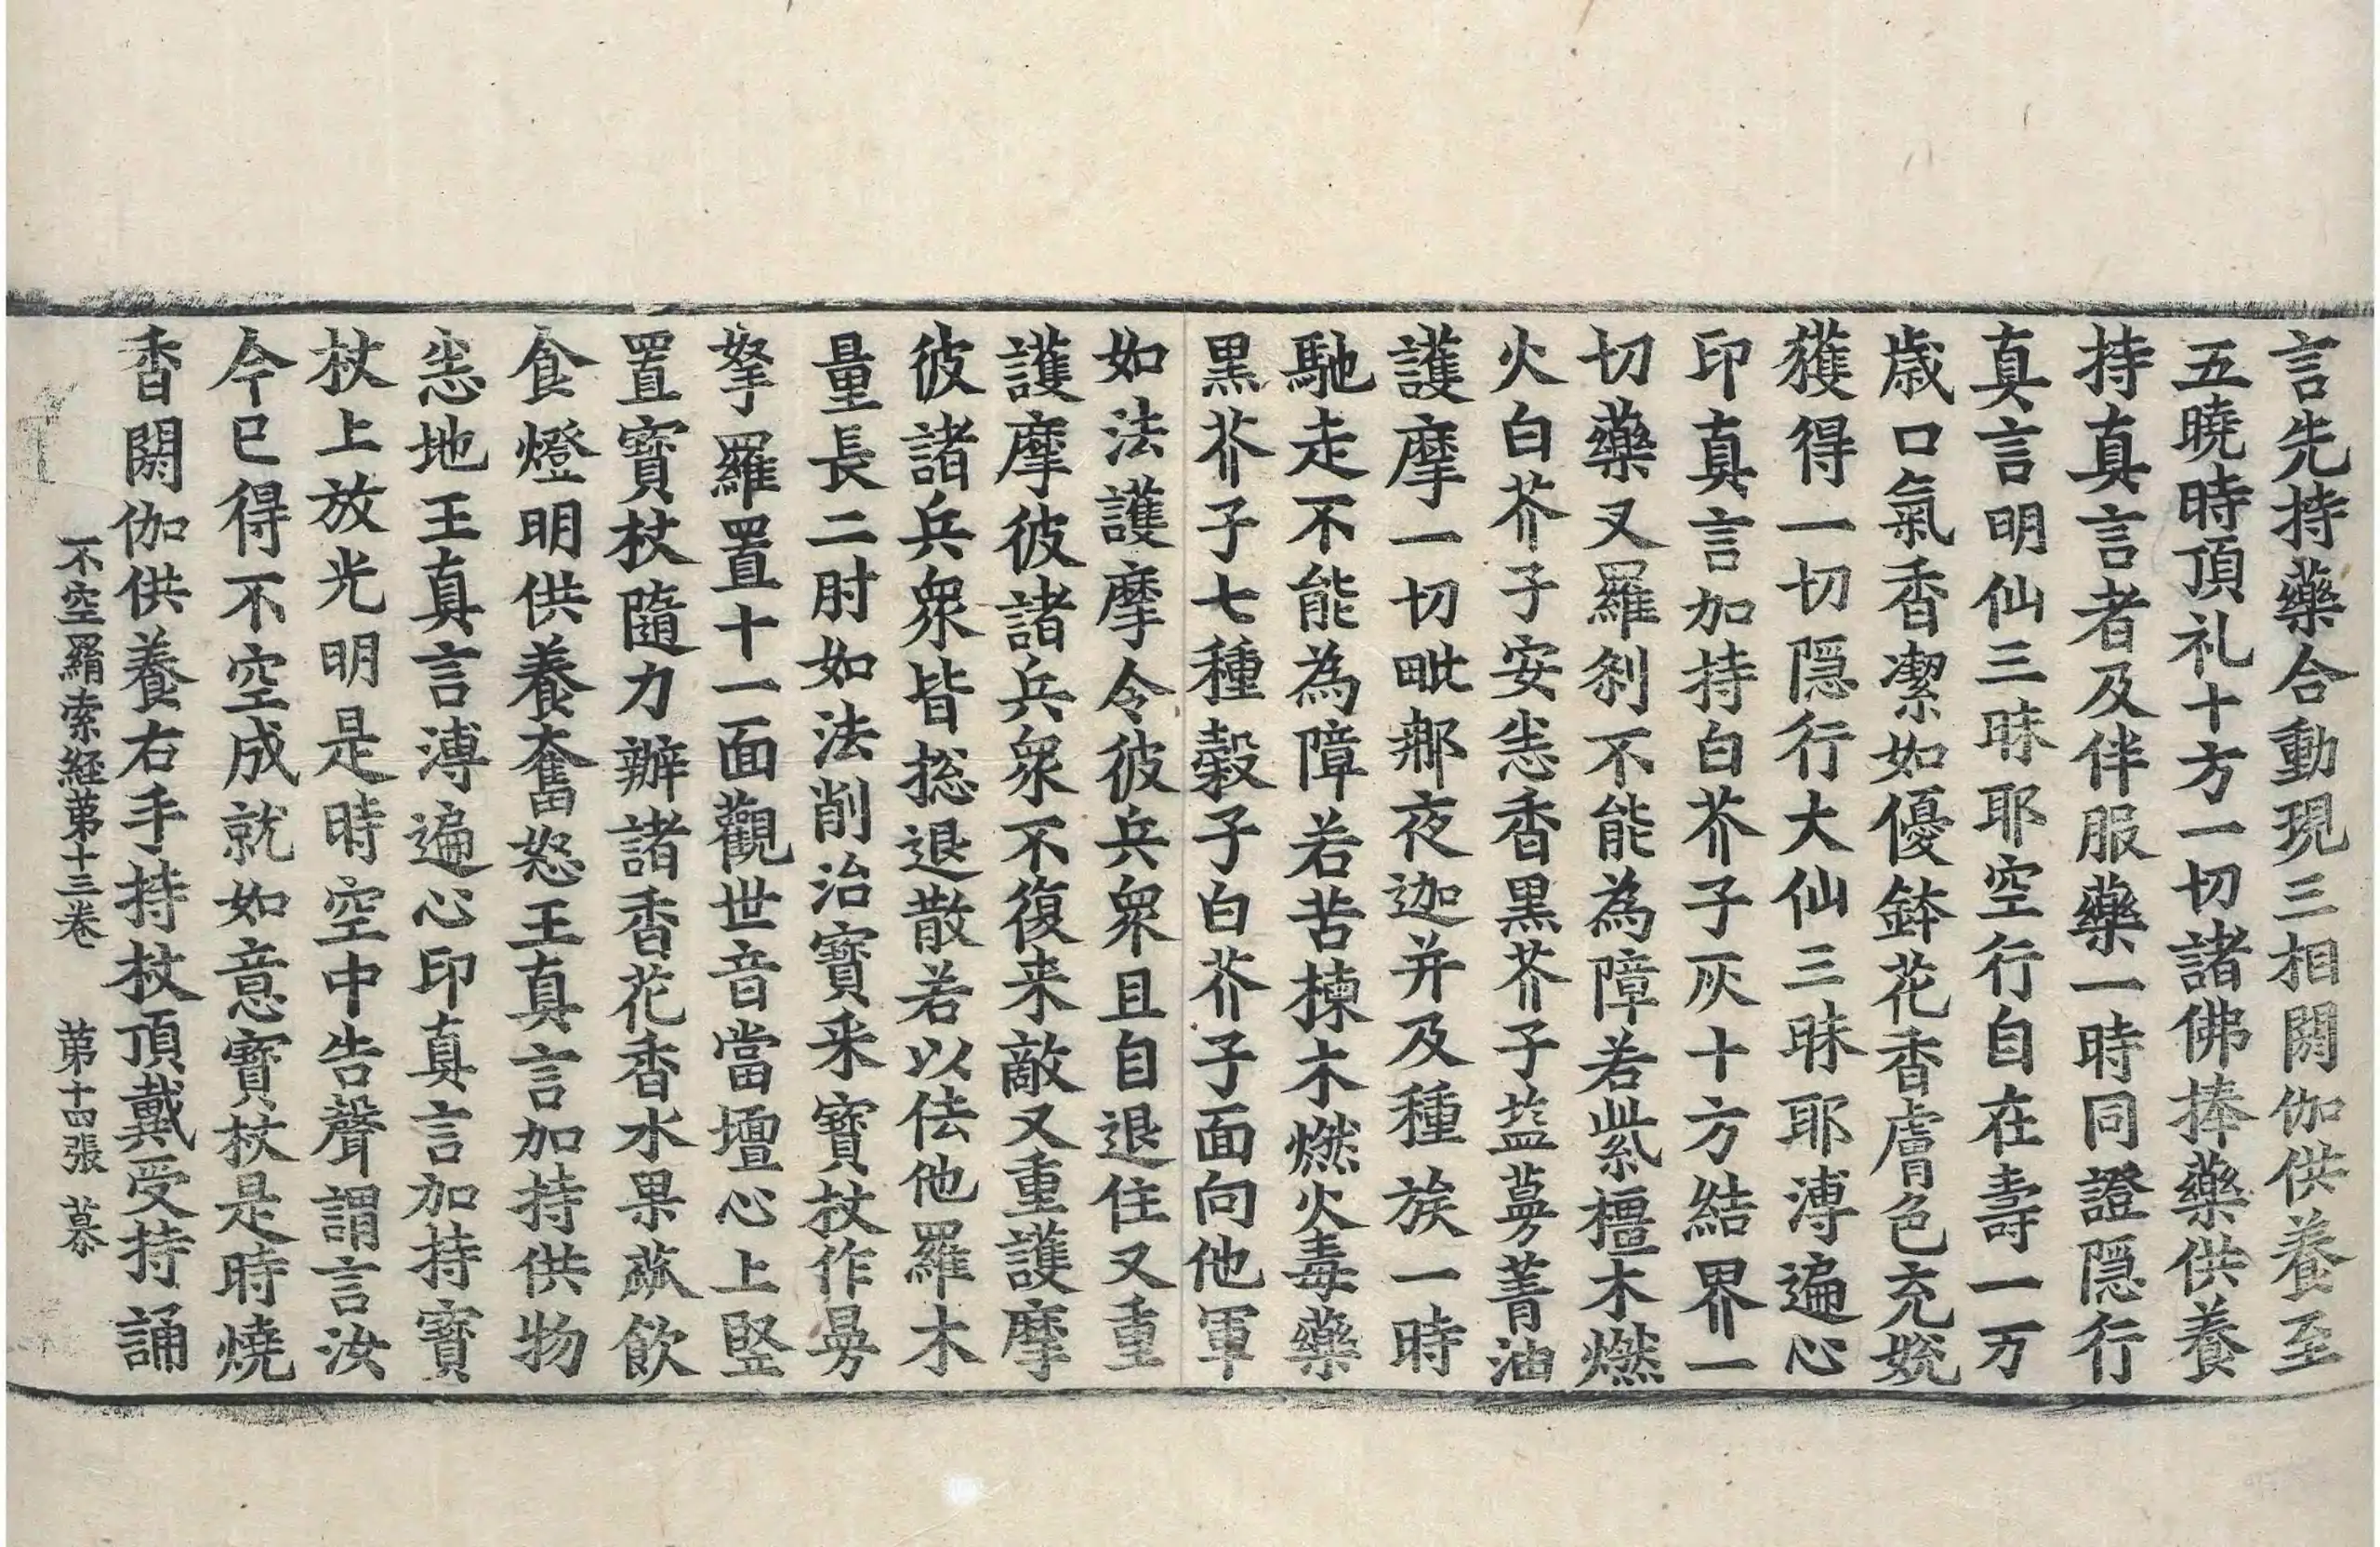 言先持藥合動現三相閼伽供養至
五曉時頂礼十方一切諸佛捧藥供養
持真言者及伴服藥一時同證隱行
真言明仙三昧耶空行自在壽一万
歲口氣香潔如優鉢花香膚色充㛹
獲得一切隱行大仙三昧耶溥遍心
印真言加持白芥子灰十方結界一
切藥叉羅剎不能為障若紫檀木燃
火白芥子安悉香黑芥子盐蔓菁油
護摩一切毗那夜迦并及種族一時
馳走不能為障若苦楝木燃火毒藥
黑芥子七種穀子白芥子面向他軍
如法護摩令彼兵衆且自退住又重
護摩彼諸兵衆不復来敵又重護摩
彼諸兵衆皆捴退散若以佉他羅木
量長二肘如法削治寶釆寶杖作曼
拏羅置十一面觀世音當壇心上竪
置寶杖隨力辦諸香花香水果蓏飲
食燈明供養奮怒王真言加持供物
悉地王真言溥遍心印真言加持寶
杖上放光明是時空中告聲謂言汝
今已得不空成就如意寶杖是時燒
香閼伽供養右手持杖頂戴受持誦
不空羂索経苐十三卷 苐十四張 慕